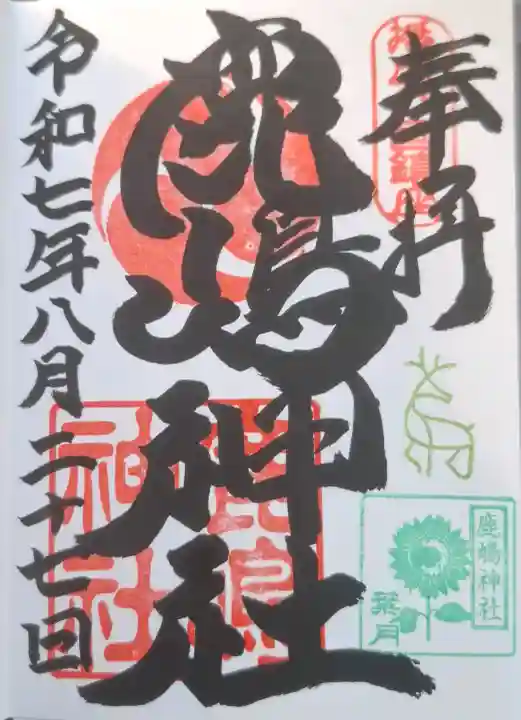 奉拝
鹿嶋神社
令和七年八月二十七日
鹿嶋神社
葉月
鹿島
神社